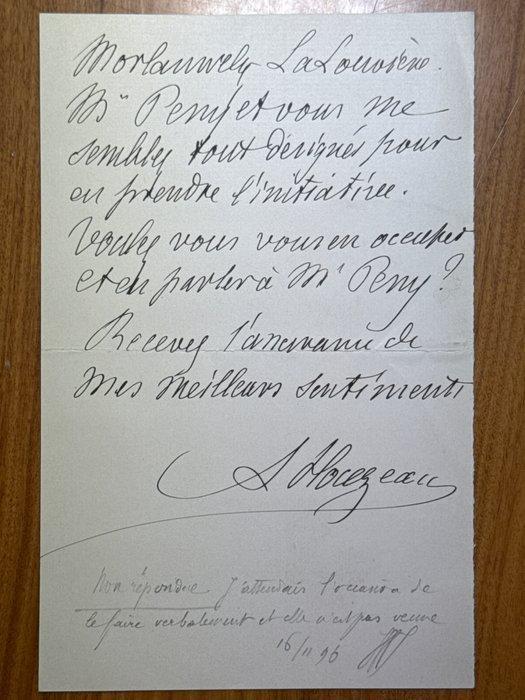 Morlanwelz La Louvière.
Mr Peny et vous me
semblez tout désignés pour
en prendre l'initiative.
Voulez vous vous en occuper
et en parler à Mr Peny ?
Recevez l'assurance de
mes meilleurs sentiments
A Houzeau
Non répondue J'attendais l'occasion de
le faire verbalement et elle n'est pas venue
16/11 96